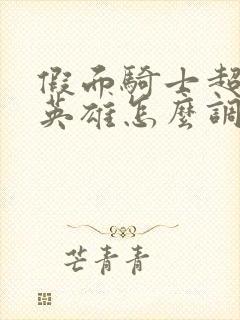 假面騎士超
英雄怎麼調
芒青青